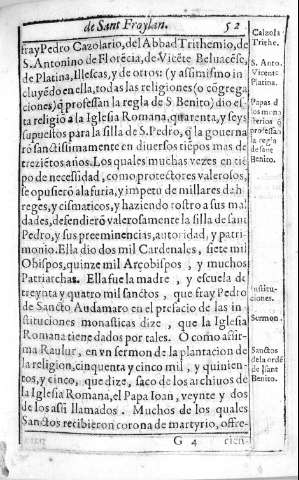 de Sant Froylan.
52
fray Pedro Cazolario, del Abbad Trithemio, de
S. Antonino de Florẽcia, de Vicẽte Beluacẽse,
de Platina, Illescas, y de otros: (y assimismo in
cluyẽdo en ella, todas las religiones (o cõgrega
ciones) q̃ professan la regla de S Benito) dio es-
ta religiõ a la Iglesia Romana, quarenta, y seys
supuestos para la silla de S. Pedro, q̃ la gouerna
rõ sanctissimamente en diuersos tiẽpos mas de
trezientos años. Los quales muchas vezes en tiẽ
po de necessidad, como protectores valerosos,
se opusierõ a la furia, y impetu de millares de he
reges, y cismaticos, y haziendo rostro a sus mal
dades, defendierõ valerosamente la silla de sant
Pedro, y sus preeminencias, autoridad, y patri-
monio. Ella dio dos mil Cardenales, siete mil
Obispos, quinze mil Arçobispos, y muchos
Patriarchas. Ella fue la madre, y escuela de
treynta y quatro mil sanctos, que fray Pedro
de Sancto Audamaro en el prefacio de las in
stituciones monasticas dize, que la Iglesia
Romana tiene dados por tales. O como afir-
ma Raulur, en vn sermon de la plantacion de
la religion, cinquenta y cinco mil, y quinien-
tos, y cinco, que dize, saco de los archiuos de
la Iglesia Romana, el Papa Ioan, veynte y dos
de los assi llamados. Muchos de los quales
Sanctos recibieron corona de martyrio, offre-
G 4
cien-
Calzola
Trithe.
S. Anto.
Vicente
Platina.
Papas d
los mona
sterios q̃
professan
la regla
de sant
Benito.
Institu-
ciones.
Sermon.
Sanctos
de la ordẽ
de sant
Benito.